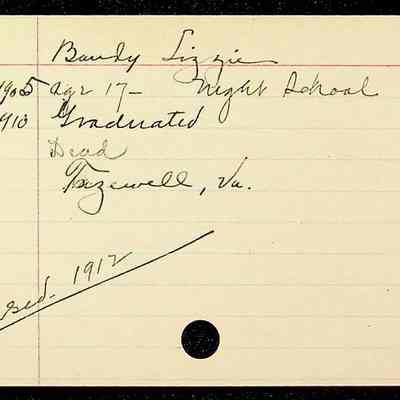 Bandy Lizzie
1905 age 17- Night School
1910 Graduated
Dead
Tazewell, Va.
1912